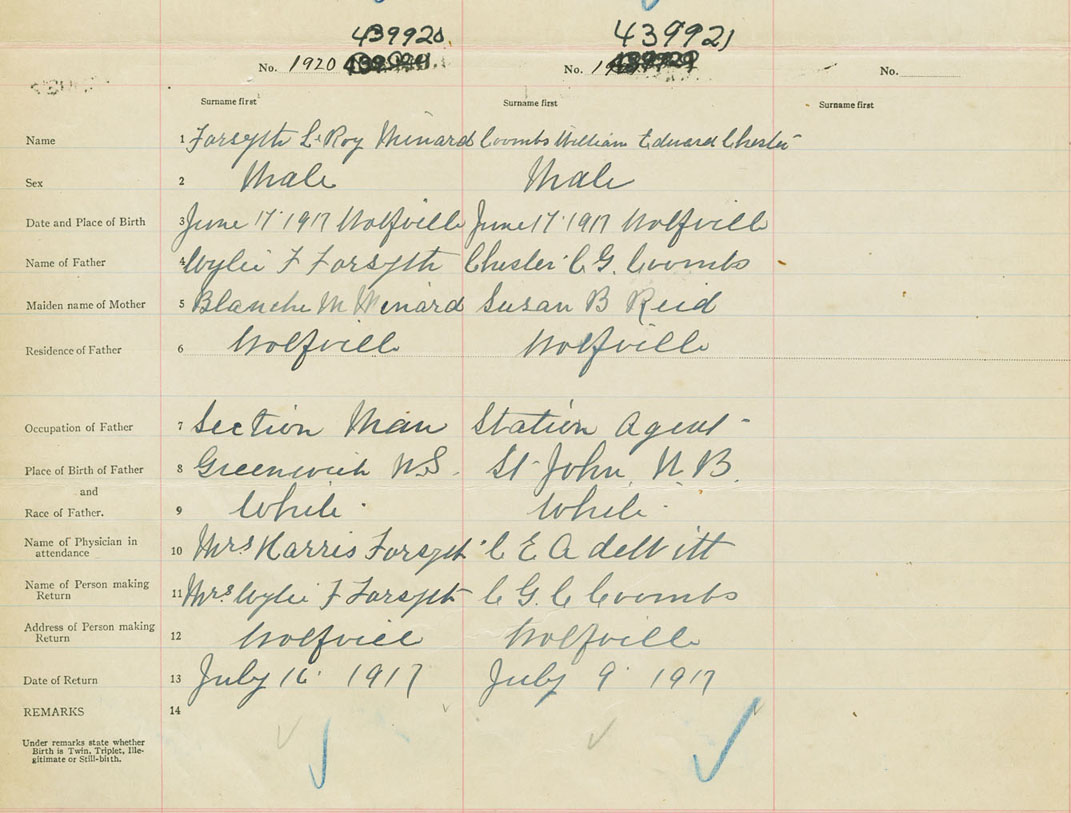 439920. 439921
No. 1920 No. No.
Surname first Surname first Surname first
Name 1 Forsyth LeRoy Minard Coombs William Edward Chester
Sex 2 Male Male
Date and Place of Birth 3 June 17 1917 Wolfville June 17 1917 Wolfville
Name of Father 4 Wylie F Forsyth Chester C G. Coombs
Maiden name of Mother 5 Blanche M Minard Susan B Reid
Residence of Father 6 Wolfville Wolfville
Occupation of Father 7 Section Man Station Agent
Place of Birth of Father 8 Greenwich N.S. St John N.B.
and
Race of Father. 9 White White
Name of Physician in
attendance 10 Mrs Harris Forsyth C E A deWitt
Name of Person making
Return 11 Mrs Wylie F Forsyth C G. C Coombs
Address of Person making
Return 12 Wolfville Wolfville
Date of Return 13 July 16 1917 July 9 1917
REMARKS 14
Under remarks state whether
Birth is Twin, Triplet, Ille-
gitimate or Still-birth.